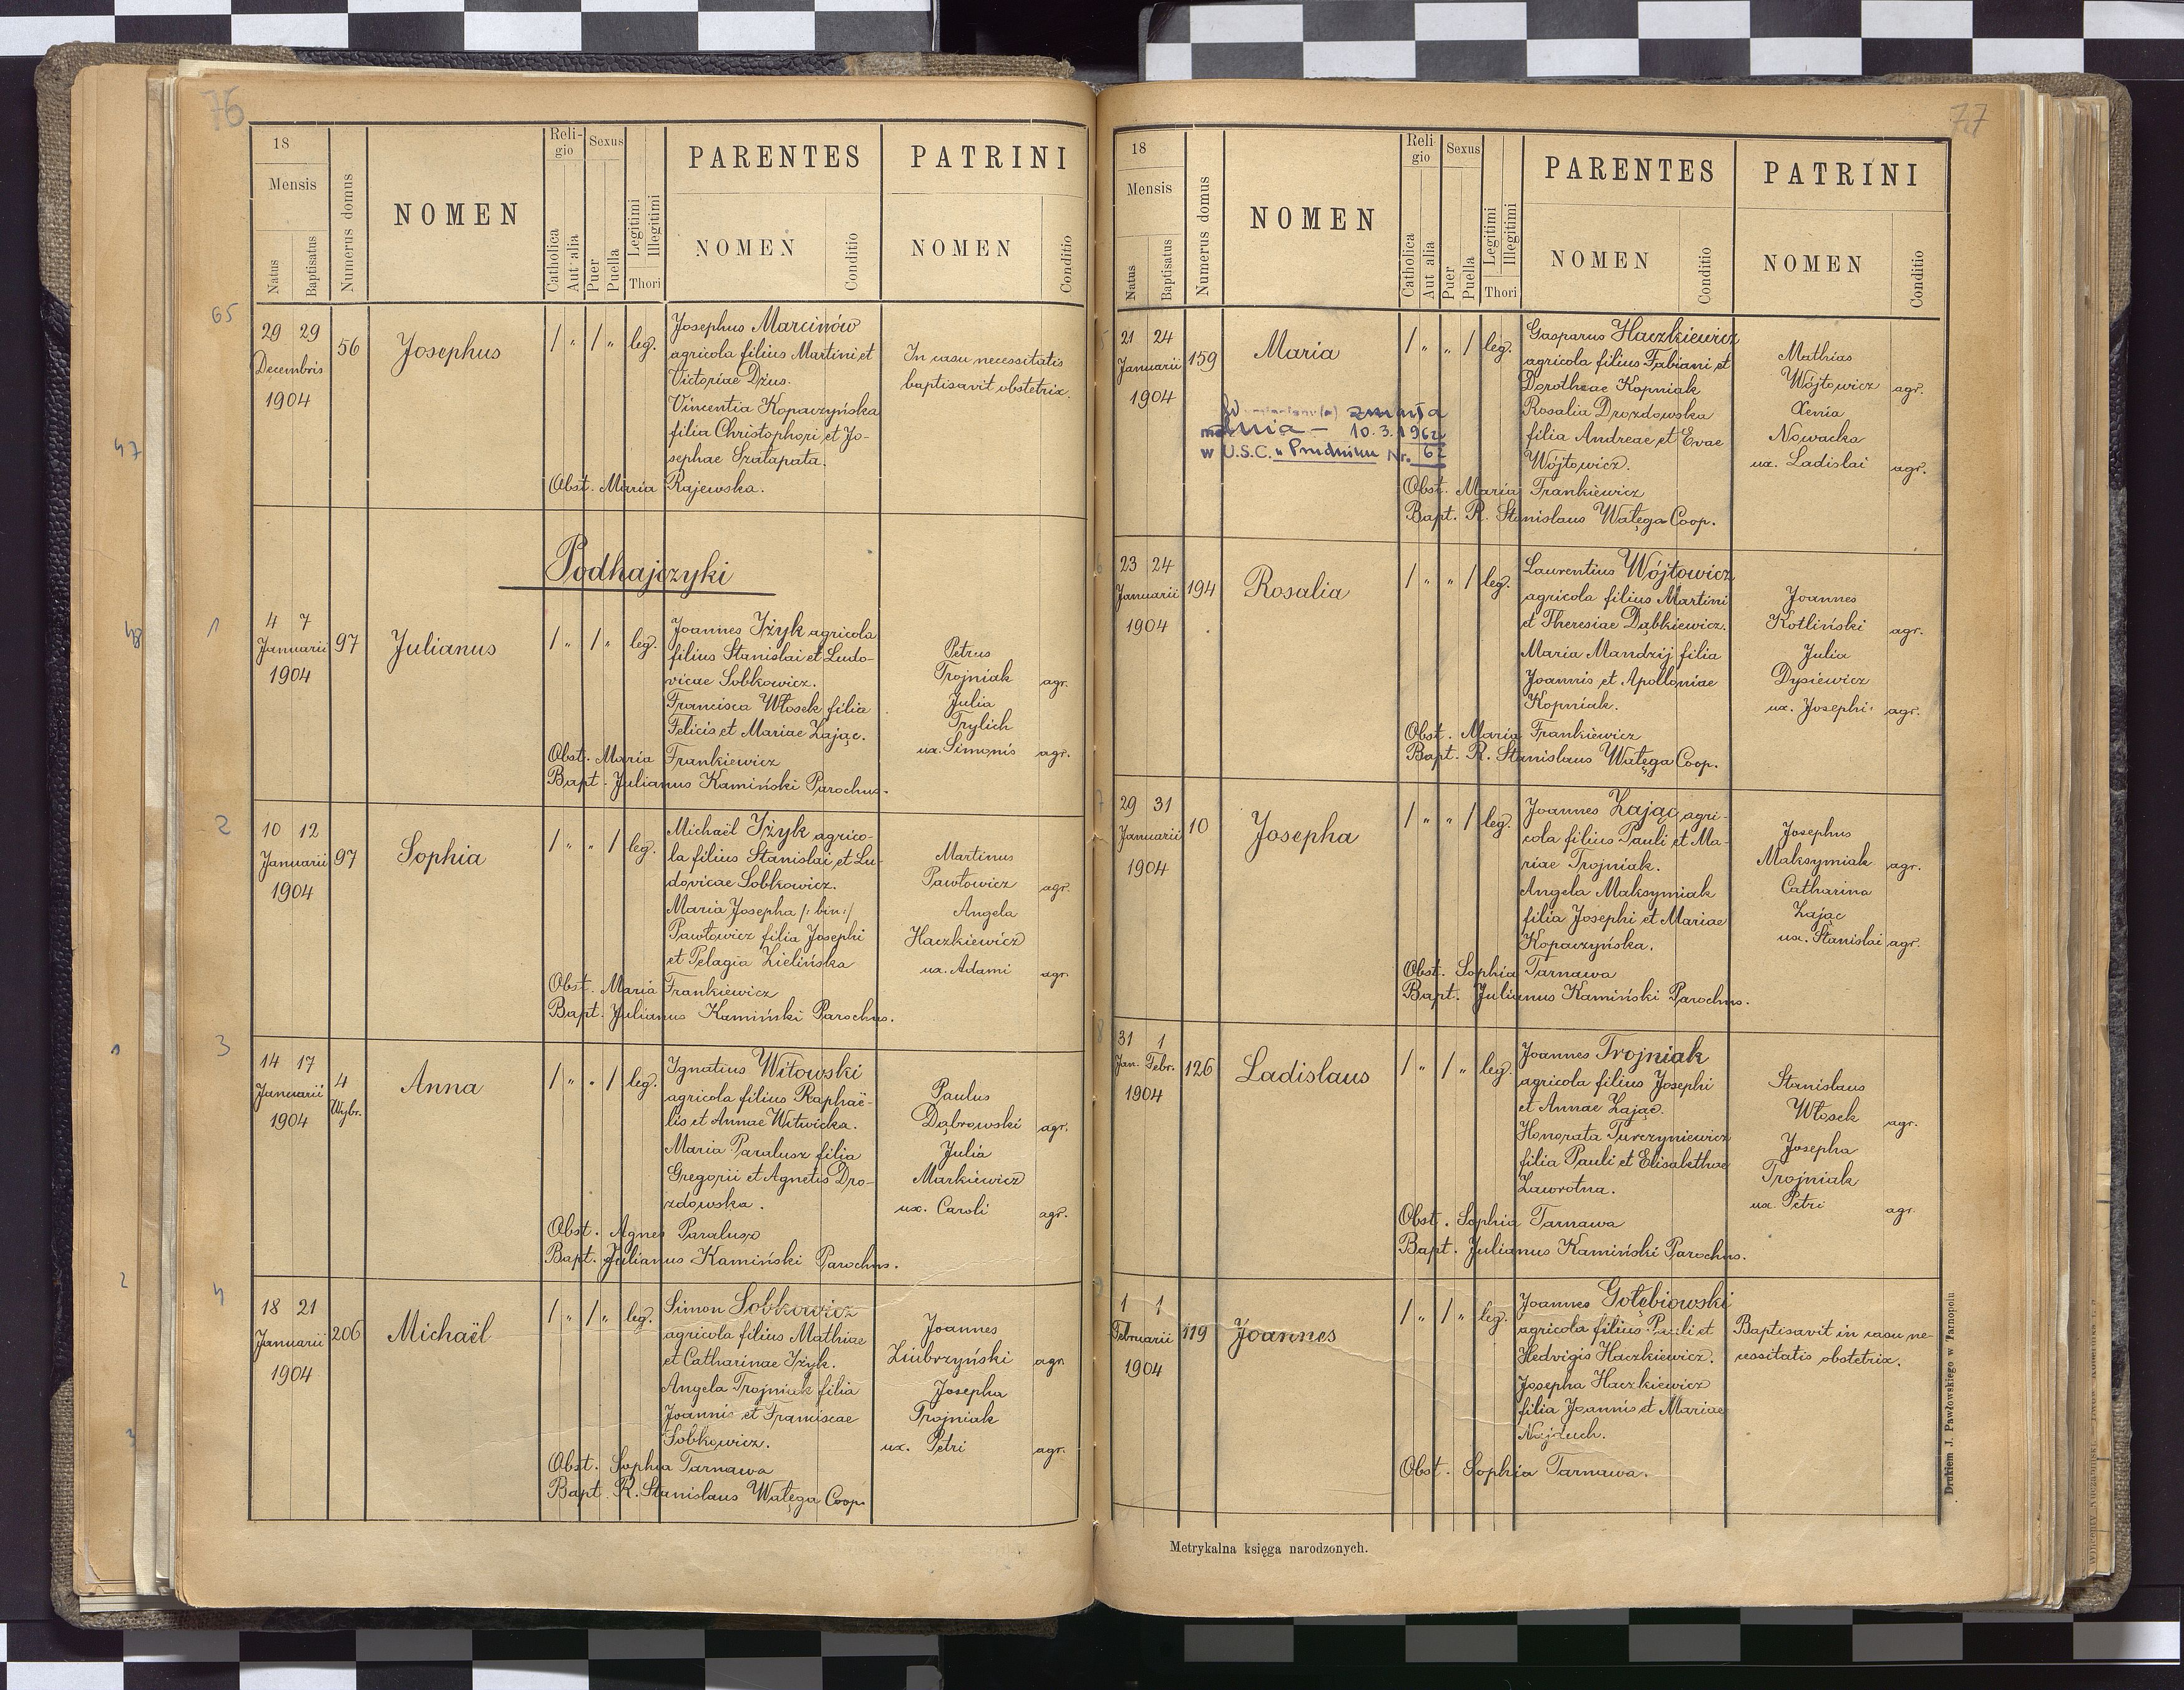 76
18
Mensis
Natus
Baptisatus
Numerus domus
NOMEN
Reli-
gio
Catholica
Aut alia
Sexus
Puer
Puella
Legitimi
Illegitimi
Thori
PARENTES
NOMEN
Conditio
PATRINI
NOMEN
Conditio
65
29 29
Decembris
1904
56
Josephus
/ " / " leg.
Josephus Marcinów
agricola filius Martini et
Victoriae Dżus.
Vincentia Kopaczyńska
filia Christophori et Jo-
sephae Szałapata.
Obst. Maria Rajewska.
In casu necessitatis
baptisavit obstetrix.
Podhajczyki
47
48
1
4 7
Januarii
1904
97
Julianus
/ " / " leg.
Joannes Iżyk agricola
filius Stanislai et Ludo-
vicae Sobkowicz.
Francisca Włosek filia
Felicis et Mariae Zając.
Obst. Maria Frankiewicz
Bapt. Julianus Kamiński Parochus.
Petrus
Trojniak agr.
Julia
Trylich
ux. Simonis agr.
2
10 12
Januarii
1904
97
Sophia
/ " " / leg.
Michaël Iżyk agrico-
la filius Stanislai et Lu-
dovicae Sobkowicz.
Maria Josepha /: bin :/
Pawłowicz filia Josephi
et Pelagia Zielińska
Obst. Maria Frankiewicz
Bapt. Julianus Kamiński Parochus.
Martinus
Pawłowicz agr.
Angela
Haczkiewicz
ux. Adami agr.
1
3
14 17
Januarii
1904
4
Wybr.
Anna
/ " " / leg.
Ignatius Witowski
agricola filius Raphaë-
lis et Annae Witwicka.
Maria Paralusz filia
Gregorii et Agnetis Dro-
zdowska.
Obst. Agnes Paralusz
Bapt. Julianus Kamiński Parochus.
Paulus
Dąbrowski agr.
Julia
Markiewicz
ux. Caroli agr.
2
4
18 21
Januarii
1904
206
Michaël
/ " / " leg.
Simon Sobkowicz
agricola filius Mathiae
et Catharinae Iżyk.
Angela Trojniak filia
Joannis et Franciscae
Sobkowicz.
Obst. Sophia Tarnawa
Bapt. R. Stanislaus Wałęga Coop.
Joannes
Ziubrzyński agr.
Josepha
Trojniak
ux. Petri agr.
3
77
18
Mensis
Natus
Baptisatus
Numerus domus
NOMEN
Reli-
gio
Catholica
Aut alia
Sexus
Puer
Puella
Legitimi
Illegitimi
Thori
PARENTES
NOMEN
Conditio
PATRINI
NOMEN
Conditio
5
21 24
Januarii
1904
159
Maria
/ " " / leg.
zmarła
dnia — 10.3.1962
w U.S.C. w Prudniku Nr. 62
Gasparus Haczkiewicz
agricola filius Fabiani et
Dorotheae Kopniak
Rosalia Drozdowska
filia Andreae et Evae
Wójtowicz.
Obst. Maria Frankiewicz
Bapt. R. Stanislaus Wałęga Coop.
Mathias
Wójtowicz agr.
Xenia
Nowacka
ux. Ladislai agr.
6
23 24
Januarii
1904
194
Rosalia
/ " " / leg.
Laurentius Wójtowicz
agricola filius Martini
et Theresiae Dąbkiewicz.
Maria Mandzij filia
Joannis et Apolloniae
Kopniak.
Obst. Maria Frankiewicz
Bapt. R. Stanislaus Wałęga Coop.
Joannes
Kotliński agr.
Julia
Dysiewicz
ux. Josephi agr.
7
29 31
Januarii
1904
10
Josepha
/ " " / leg.
Joannes Zając agri-
cola filius Pauli et Ma-
riae Trojniak.
Angela Maksymiak
filia Josephi et Mariae
Kopaczyńska.
Obst. Sophia Tarnawa
Bapt. Julianus Kamiński Parochus.
Josephus
Maksymiak agr.
Catharina
Zając
ux. Stanislai agr.
8
31 1
Jan. Febr.
1904
126
Ladislaus
/ " / " leg.
Joannes Trojniak
agricola filius Josephi
et Annae Zając.
Honorata Turczyniewicz
filia Pauli et Elisabethae
Zaworotna.
Obst. Sophia Tarnawa
Bapt. Julianus Kamiński Parochus.
Stanislaus
Włosek agr.
Josepha
Trojniak
ux. Petri agr.
9
1 1
Februarii
1904
119
Joannes
/ " / " leg.
Joannes Gołębiowski
agricola filius Pauli et
Hedvigis Haczkiewicz.
Josepha Haczkiewicz
filia Joannis et Mariae
Najduch.
Obst. Sophia Tarnawa.
Baptisavit in casu ne-
cessitatis obstetrix.
Metrykalna księga narodzonych.
Drukiem J. Pawłowskiego w Tarnopolu